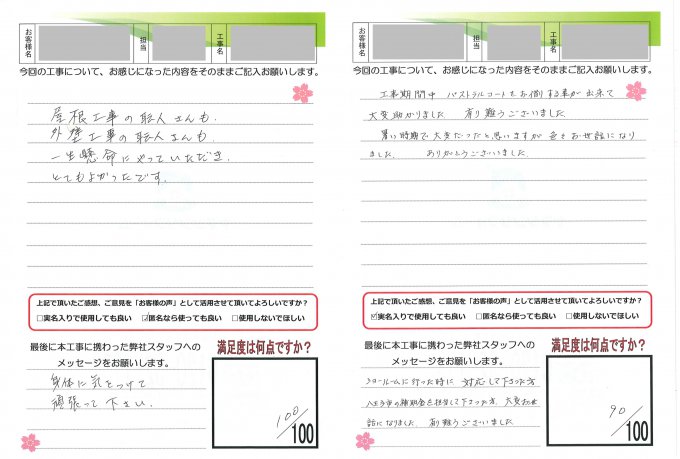 お客様名
担当
工事名
今回の工事について、お感じになった内容をそのままご記入お願いします。
屋根工事の職人さんも、
外壁工事の職人さんも、
一生懸命にやっていただき、
とてもよかったです。
上記で頂いたご感想、ご意見を「お客様の声」として活用させて頂いてよろしいですか?
□実名入りで使用しても良い ☑匿名なら使っても良い □使用しないでほしい
最後に本工事に携わった弊社スタッフへの
メッセージをお願いします。
身体に気をつけて
頑張って下さい。
満足度は何点ですか?
100/100
お客様名
担当
工事名
今回の工事について、お感じになった内容をそのままご記入お願いします。
工事期間中 パストラルコートをお借りする事が出来て
大変助かりました 有り難うございました
暑い時期で大変だったと思いますが お世話になり
ました ありがとうございました
上記で頂いたご感想、ご意見を「お客様の声」として活用させて頂いてよろしいですか?
☑実名入りで使用しても良い □匿名なら使っても良い □使用しないでほしい
最後に本工事に携わった弊社スタッフへの
メッセージをお願いします。
ショールームに行った時に 対応して下さった方
八王子市の補助金を担当して下さった方 大変お世
話になりました 有り難うございました
満足度は何点ですか?
90/100